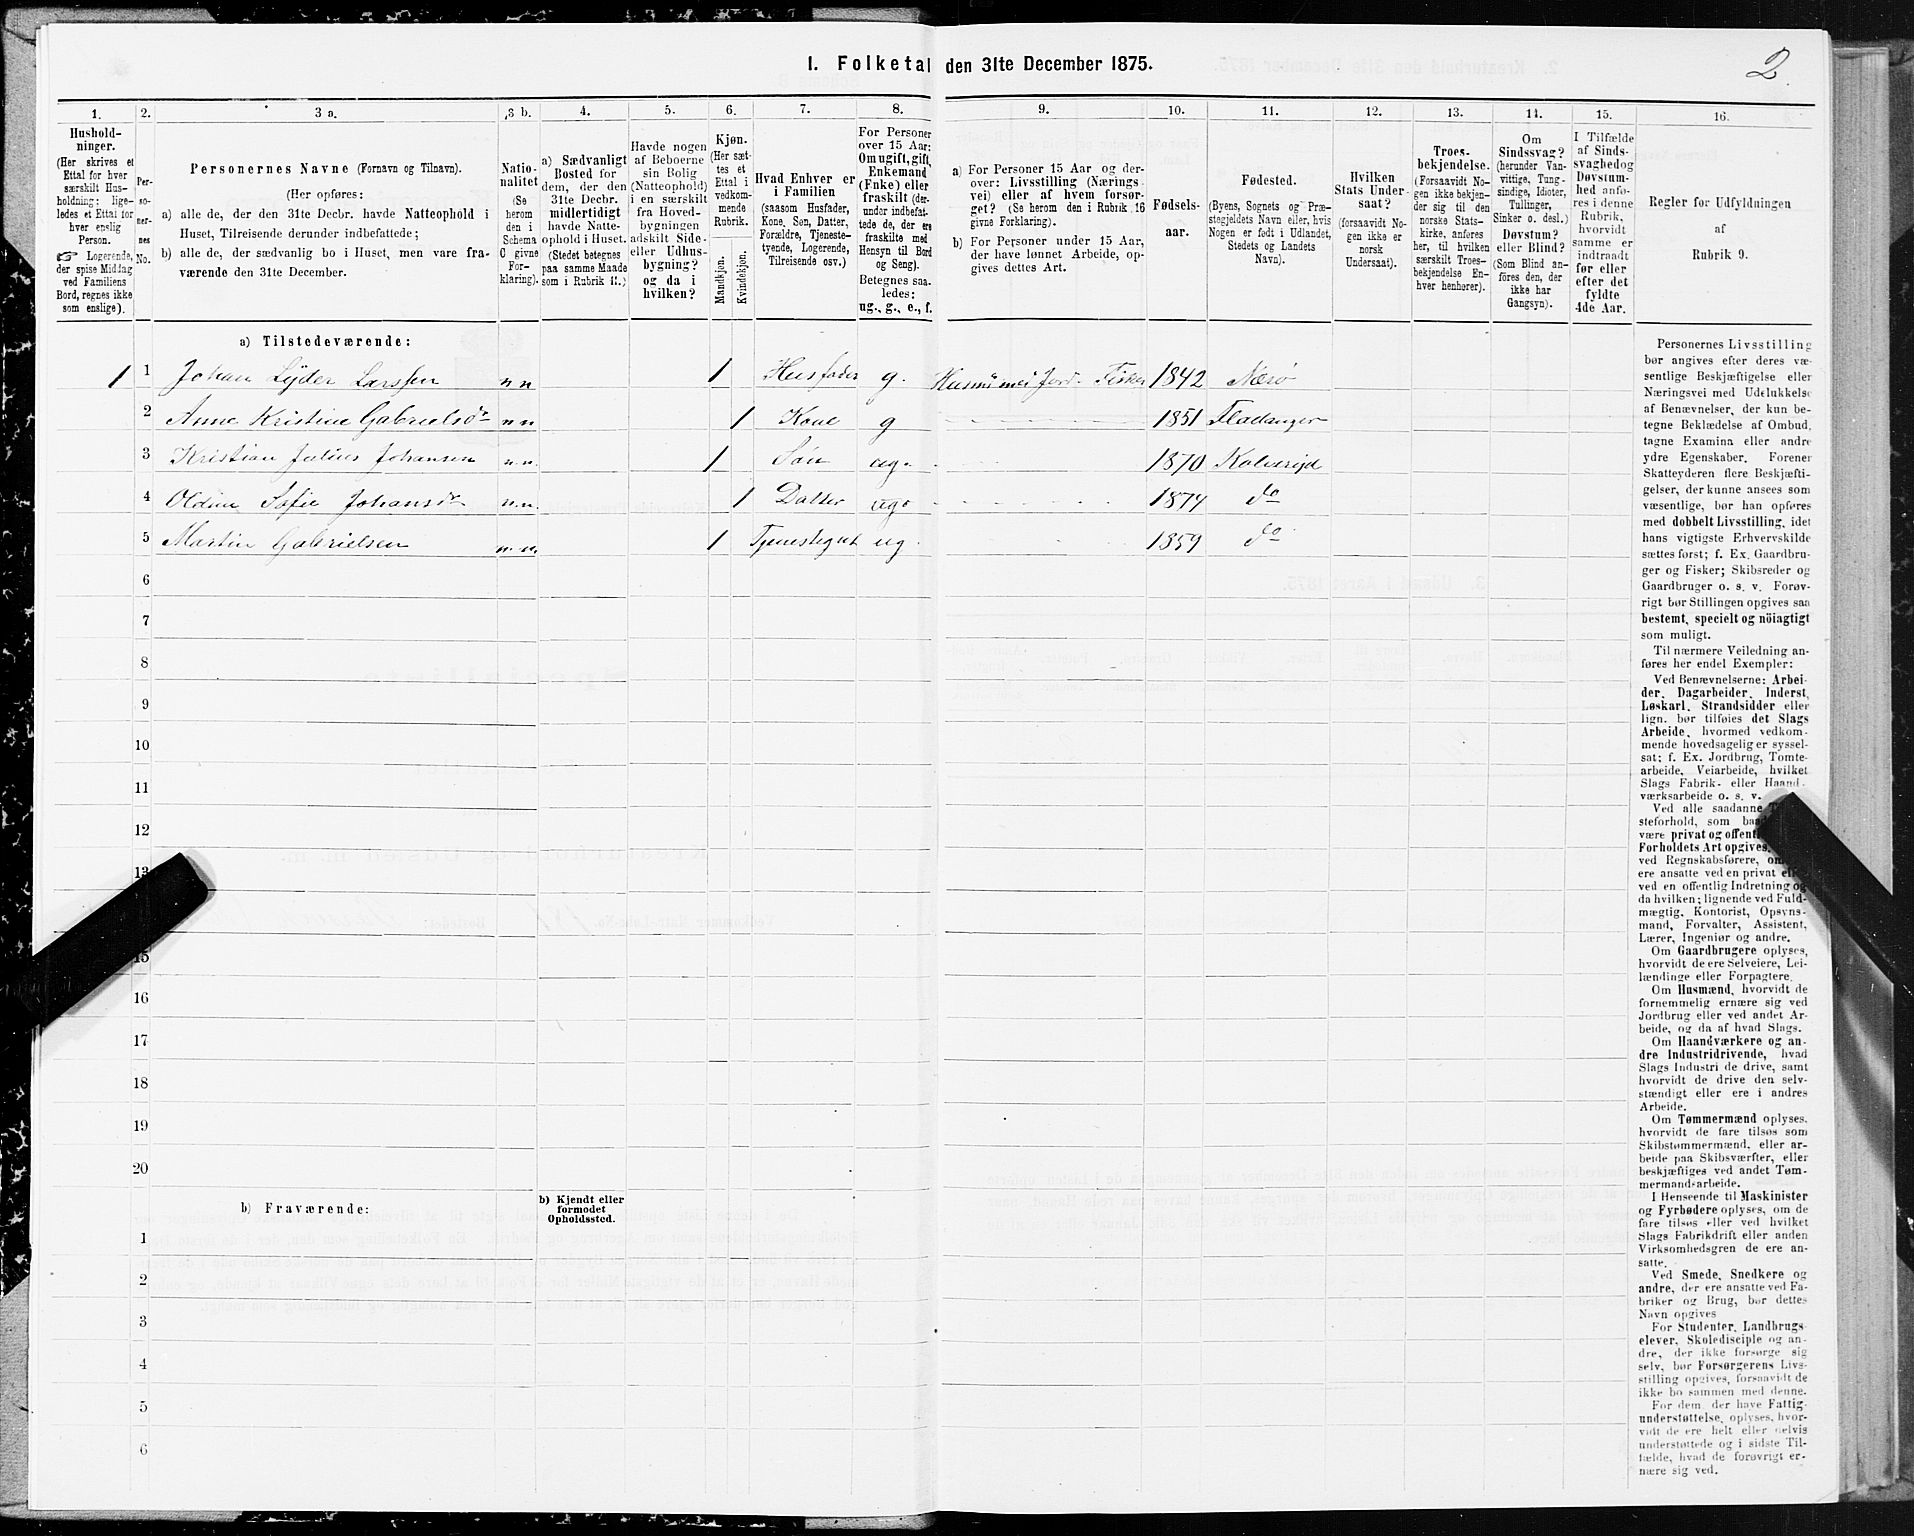 1. Folketal den 31te December 1875.
2.
1.
2.
3 a.
3 b.
4.
5.
6.
7.
8.
9.
10.
11.
12.
13.
14.
15.
16.
Hushold-
ninger.
(Her skrives et
Ettal for hver
særskilt Hus-
holdning; lige-
ledes et Ettal for
hver enslig
Person.
☞ Logerende,
der spise Middag
ved Familiens
Bord, regnes ikke
som enslige).
Per-
so-
ner-
nes
No.
Personernes Navne (Fornavn og Tilnavn).
(Her opføres:
a) alle de, der den 31te Decbr. havde Natteophold i
Huset, Tilreisende derunder indbefattede;
b) alle de, der sædvanlig bo i Huset, men vare fra-
værende den 31te December.
Natio-
nalitet
(Se
herom
den i
Schema
C givne
For-
klaring).
a) Sædvanligt
Bosted for
dem, der den
31te Decbr.
midlertidigt
havde Natte-
ophold i Huset.
(Stedet betegnes
paa samme Maade
som i Rubrik 11.)
Havde nogen
af Beboerne
sin Bolig
(Natteophold)
i en særskilt
fra Hoved-
bygningen
adskilt Side-
eller Udhus-
bygning?
og da i
hvilken?
Kjøn.
(Her sæt-
tes et
Ettal i
vedkom-
mende
Rubrik.
Mandkjøn.
Kvindekjøn.
Hvad Enhver er
i Familien
(saasom Husfader,
Kone, Søn, Datter,
Forældre, Tjeneste-
tyende, Logerende,
Tilreisende osv.)
For Personer
over 15 Aar:
Om ugift, gift,
Enkemand
(Enke) eller
fraskilt (der-
under indbefat-
tede de, der ere
fraskilte med
Hensyn til Bord
og Seng).
Betegnes saa-
ledes:
ug., g., e., f.
a) For Personer 15 Aar og der-
over: Livsstilling (Nærings
vei) eller af hvem forsør-
get? (Se herom den i Rubrik 16
givne Forklaring).
b) For Personer under 15 Aar,
der have lønnet Arbeide, op-
gives dettes Art.
Fødsels-
aar.
Fødested.
(Byens, Sognets og Præ-
stegjeldets Navn eller, hvis
Nogen er født i Udlandet,
Stedets og Landets
Navn).
Hvilken
Stats Under-
saat?
(forsaavidt No-
gen ikke er
norsk
Undersaat).
Troes-
bekjendelse.
(Forsaavidt No-
gen ikke bekjen-
der sig til den
norske Stats-
kirke, anføres
her, til hvilken
særskilt Troes-
bekjendelse En-
hver henhører).
Om
Sindssvag?
(herunder Van-
vittige, Tung-
sindige, Idioter,
Tullinger,
Sinker o. desl.)
Døvstum?
eller Blind?
(Som Blind an-
føres den, der
ikke har
Gangsyn).
I Tilfælde
af Sinds-
svaghed og
Døvstum-
hed anfø-
res i denne
Rubrik,
hvorvidt
samme er
indtraadt
før eller
efter det
fyldte
4de Aar.
Regler for Udfyldningen
af
Rubrik 9.
a) Tilstedeværende:
1 1 Johan Lyder Larssen n n 1 Husfader g. Husm: med Jord - Fisker 1842 Nærø
2 Anne Kristine Gabrielsdr n n 1 Kone g 1851 Fladanger
3 Kristian Julius Johansen n.n. 1 Søn ug. 1870 Kolvereid
4 Oldine Sofie Johansdr n.n. 1 Datter ug. 1874 do
5 Martin Gabrielsen n.n. 1 Tjenestegut ug. 1859 do
6
7
8
9
10
11
12
13
15
16
17
18
19
20
b) Fraværende:
b) Kjendt eller
formodet
Opholdssted.
1
2
3
4
5
6
Personernes Livsstilling
bør angives efter deres væ-
sentlige Beskjæftigelse eller
Næringsvei med Udelukkelse
af Benævnelser, der kun be-
tegne Beklædelse af Ombud,
tagne Examina eller andre
ydre Egenskaber. Forener
Skatteyderen flere Beskjæfti-
gelser, der kunne ansees som
væsentlige, bør han opføres
med dobbelt Livsstilling, idet
hans vigtigste Erhvervskilde
sættes først; f. Ex. Gaardbru-
ger og Fisker; Skibsreder og
Gaardbruger o. s. v. Forøv-
rigt bør Stillingen opgives saa
bestemt, specielt og nøiagtigt
som muligt.
Til nærmere Veiledning an-
føres her endel Exempler:
Ved Benævnelserne: Arbei-
der, Dagarbeider, Inderst,
Løskarl, Strandsidder eller
lign. bør tilføies det Slags
Arbeide, hvormed vedkom-
mende hovedsagelig er syssel-
sat; f. Ex. Jordbrug, Tomte-
arbeide, Veiarbeide, hvilket
Slags Fabrik- eller Haand-
værksarbeide o. s. v.
Ved alle saadanne
steforhold, som
være privat og
Forholdets Art opgives.
ved Regnskabsførere,
ere ansatte ved en privat
ved en offentlig Indretning og
da hvilken; lignende ved Fuld-
mægtig, Kontorist, Opsyns-
mand, Forvalter, Assistent,
Lærer, Ingeniør og andre.
Om Gaardbrugere oplyses,
hvorvidt de ere Selveiere, Lei-
lændinge eller Forpagtere.
Om Husmænd, hvorvidt de
fornemmelig ernære sig ved
Jordbrug eller ved andet Ar-
beide, og da af hvad Slags.
Om Haandværkere og an-
dre Industridrivende, hvad
Slags Industri de drive, samt
hvorvidt de drive den selv-
stændigt eller ere i andres
Arbeide.
Om Tømmermænd oplyses,
hvorvidt de fare tilsøs som
Skibstømmermænd, eller ar-
beide paa Skibsværfter, eller
beskjæftiges ved andet Tøm-
mermandsarbeide.
I Henseende til Maskinister
og Fyrbødere oplyses, om de
fare tilsøs eller ved hvilket
Slags Fabrikdrift eller anden
Virksomhedsgren de ere an-
satte.
Ved Smede, Snedkere og
andre, der ere ansatte ved Fa-
briker og Brug, bør dettes
Navn opgives
For Studenter, Landbrugs-
elever, Skoledisciple og an-
dre, der ikke forsørge sig
selv, bør Forsørgerens Livs-
stilling opgives, forsaavidt de
ikke bo sammen med denne.
For dem, der have Fattig-
understøttelse, oplyses, hvor-
vidt de ere helt eller delvis
understøttede og i sidste Til-
fælde, hvad de forøvrigt er-
nære sig ved.